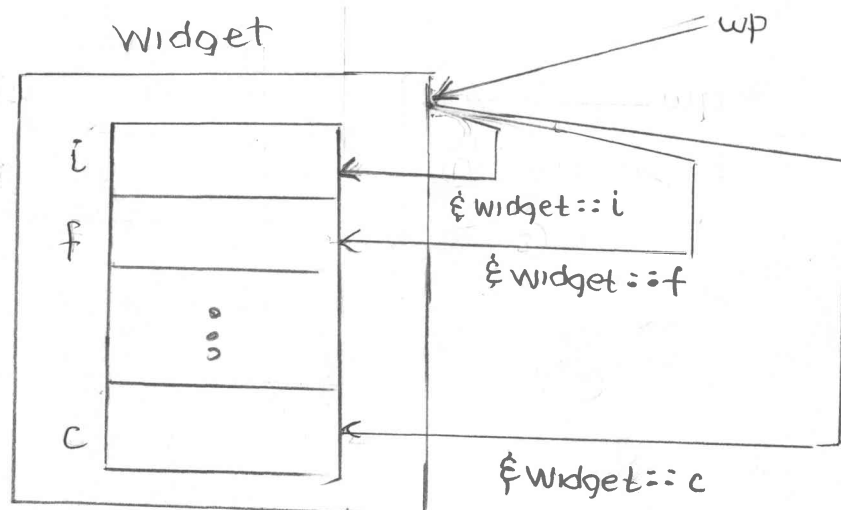 Widget
wp
i
&widget::i
f
&Widget::f
c
&Widget::c